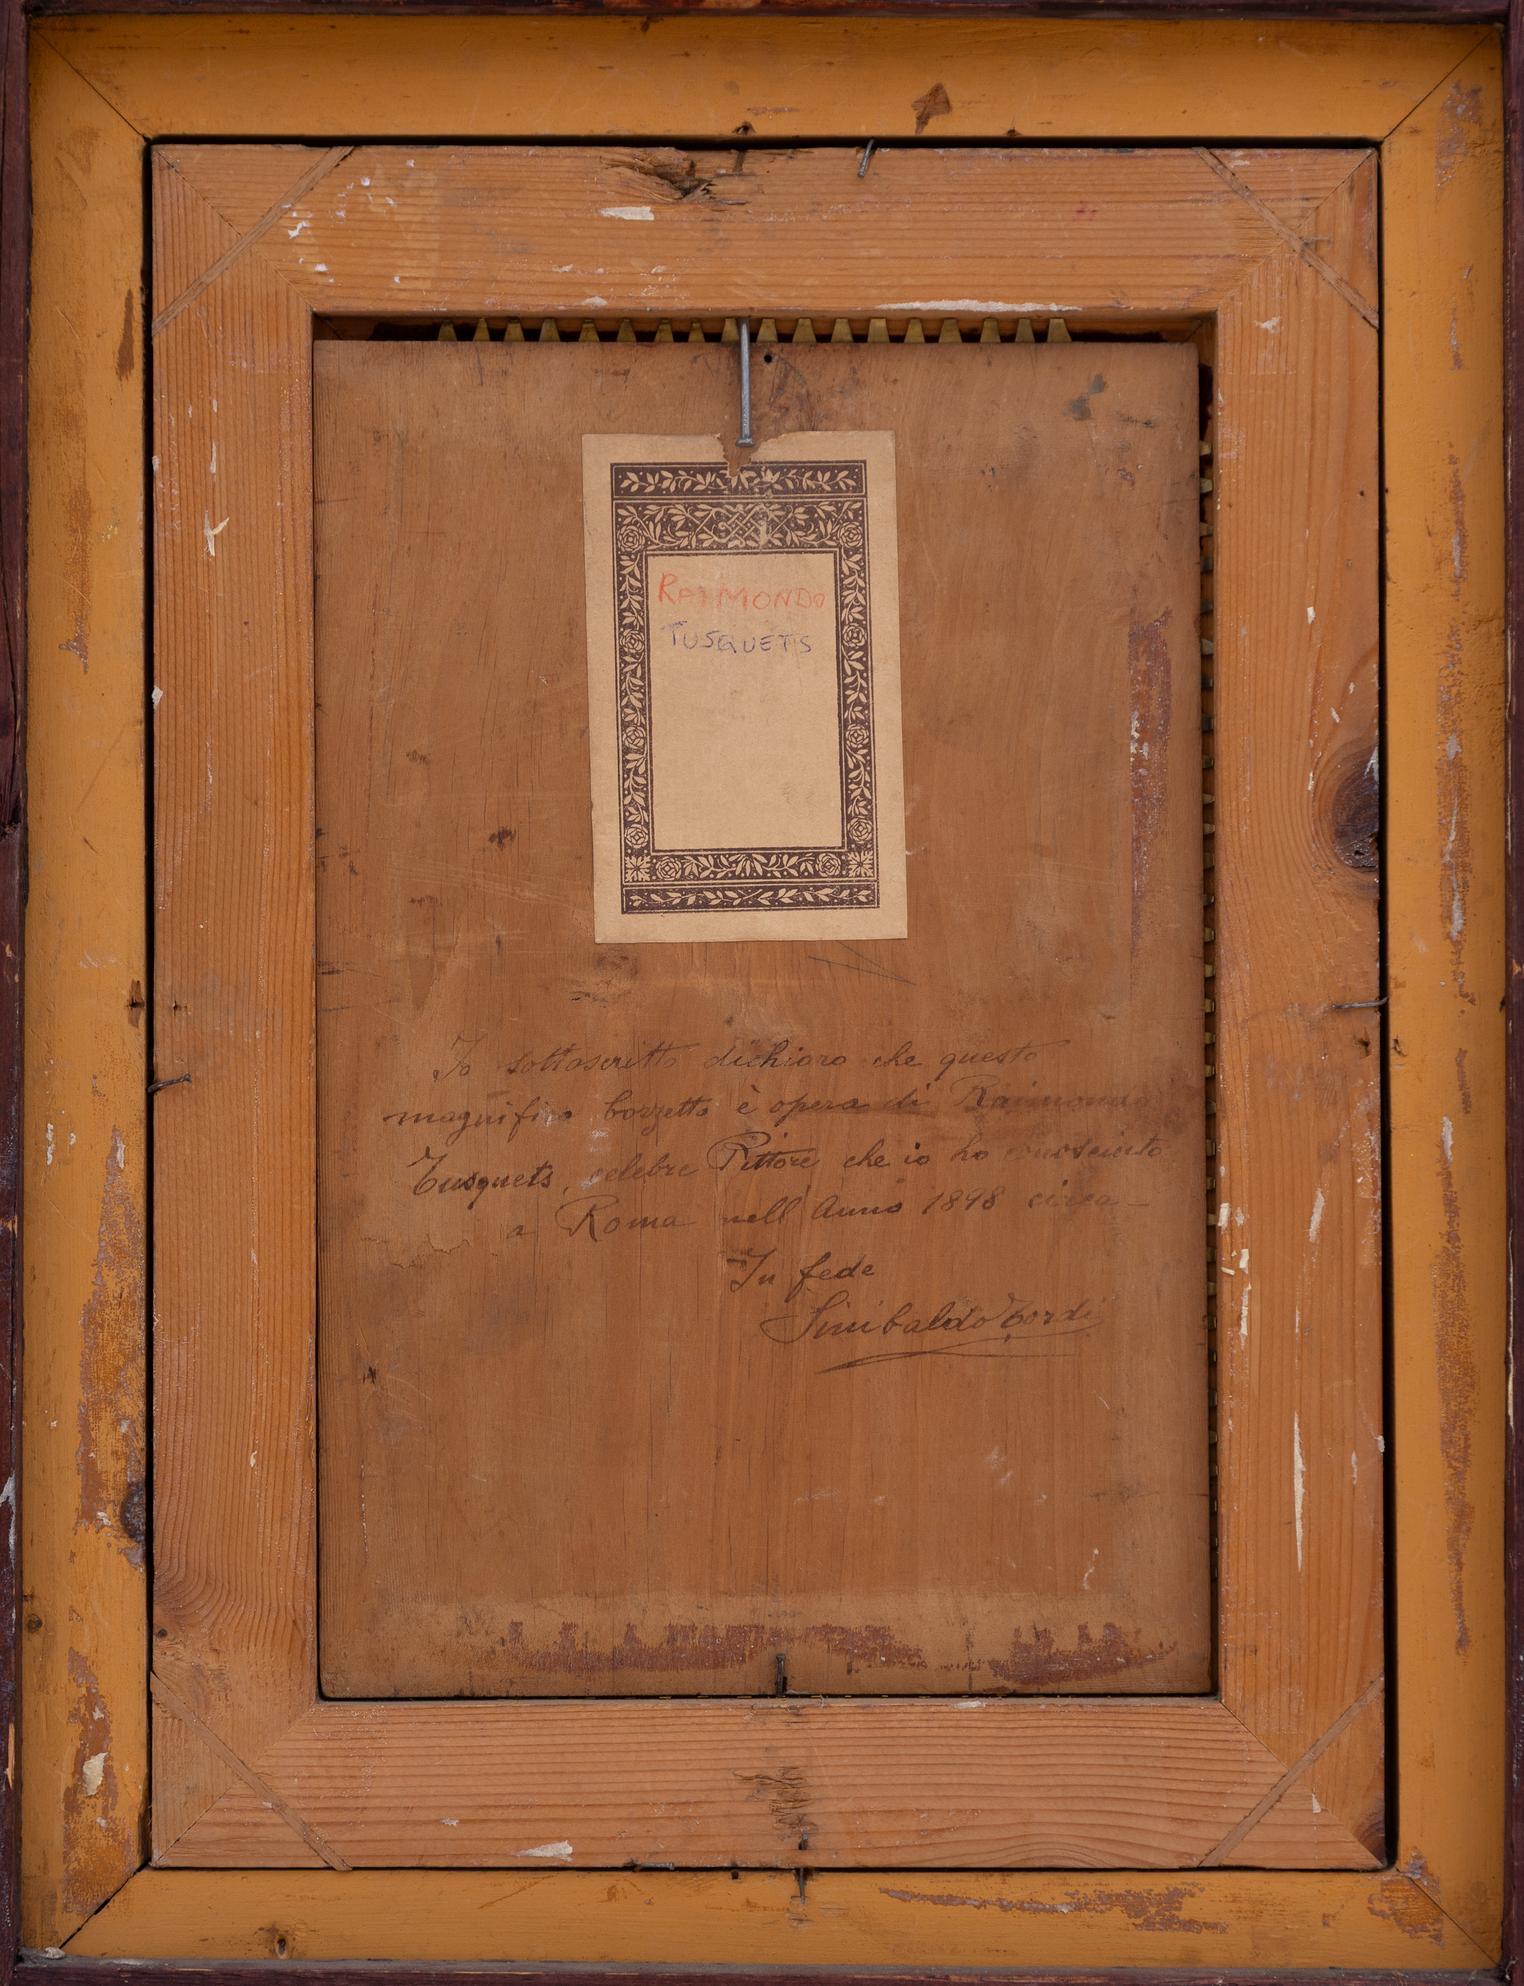 RAIMONDO
TUSQUETS
Io sottoscritto dichiaro che questo
magnifico bozzetto è opera di Raimondo
Tusquets, celebre Pittore che io ho conosciuto
a Roma nell'Anno 1898 circa –
In fede
Sinibaldo Tordi